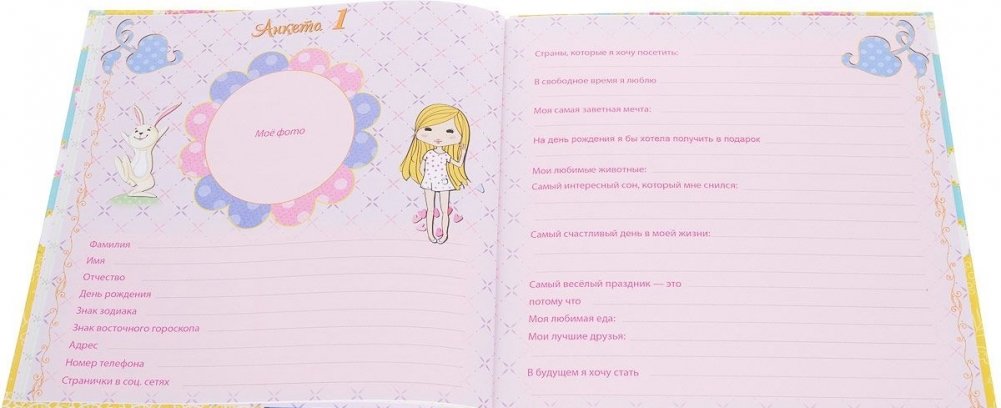 Анкета 1
Моё фото
Фамилия
Имя
Отчество
День рождения
Знак зодиака
Знак восточного гороскопа
Адрес
Номер телефона
Странички в соц. сетях
Страны, которые я хочу посетить:
В свободное время я люблю
Моя самая заветная мечта:
На день рождения я бы хотела получить в подарок
Мои любимые животные:
Самый интересный сон, который мне снился:
Самый счастливый день в моей жизни:
Самый весёлый праздник — это
потому что
Моя любимая еда:
Мои лучшие друзья:
В будущем я хочу стать